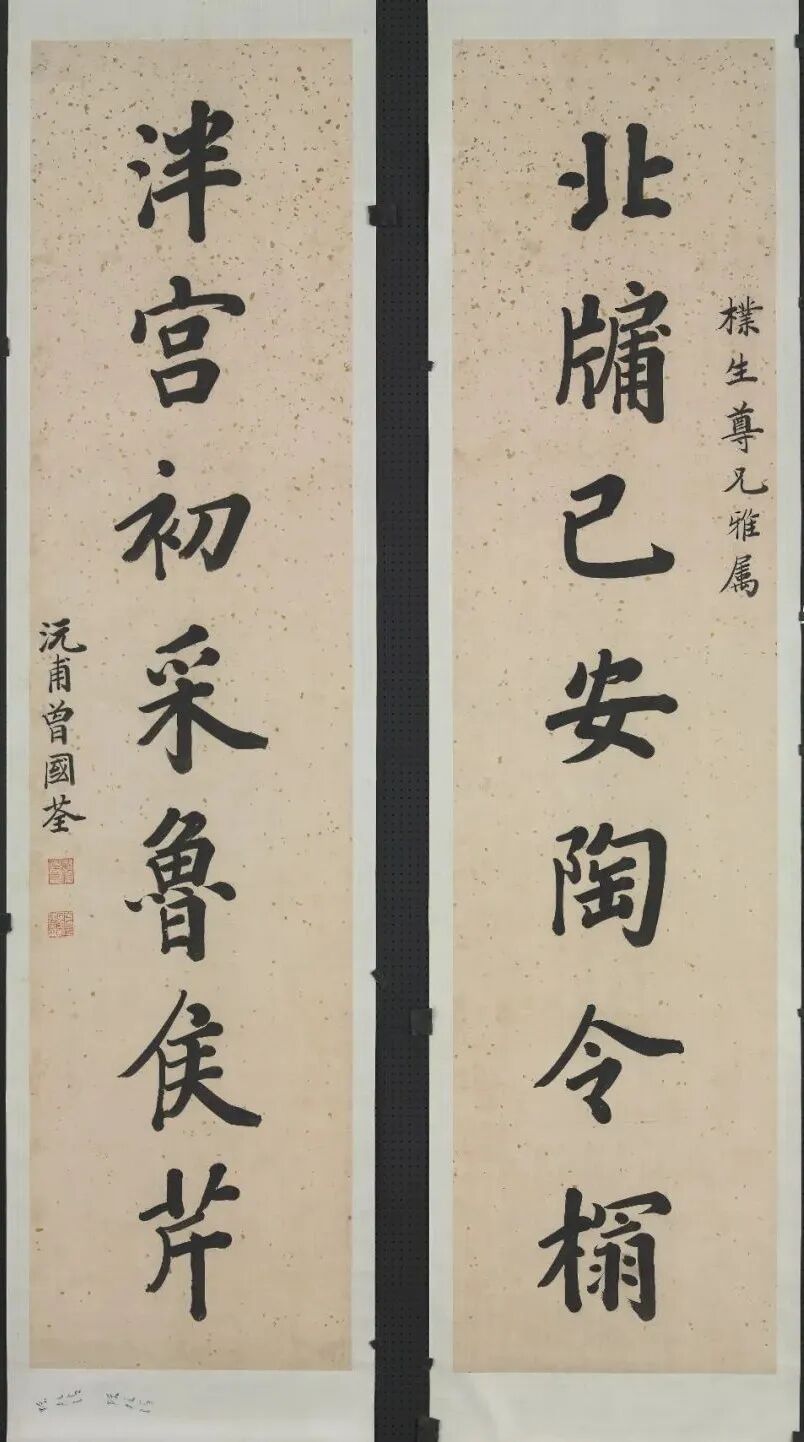 樸生尊兄雅属
北牖已安陶令榻
泮宫初采魯侯芹
沅甫曾國荃